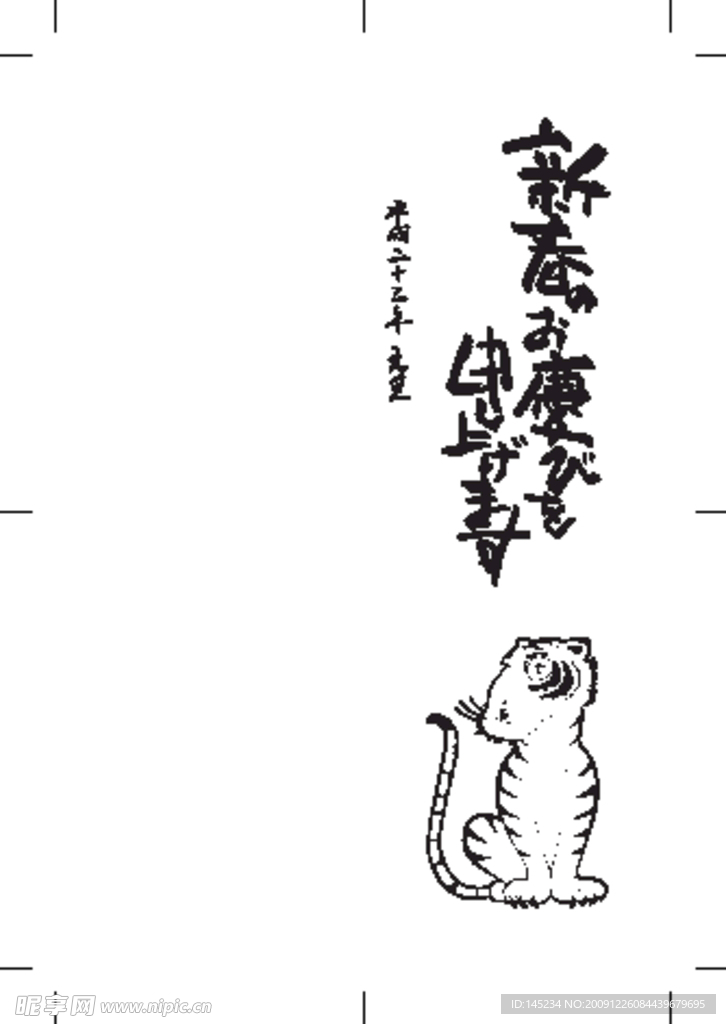 新春のお慶びを
申し上げます
平成二十二年 元旦
昵享网 www.nipic.cn
ID:145234 NO:20091226084439679695